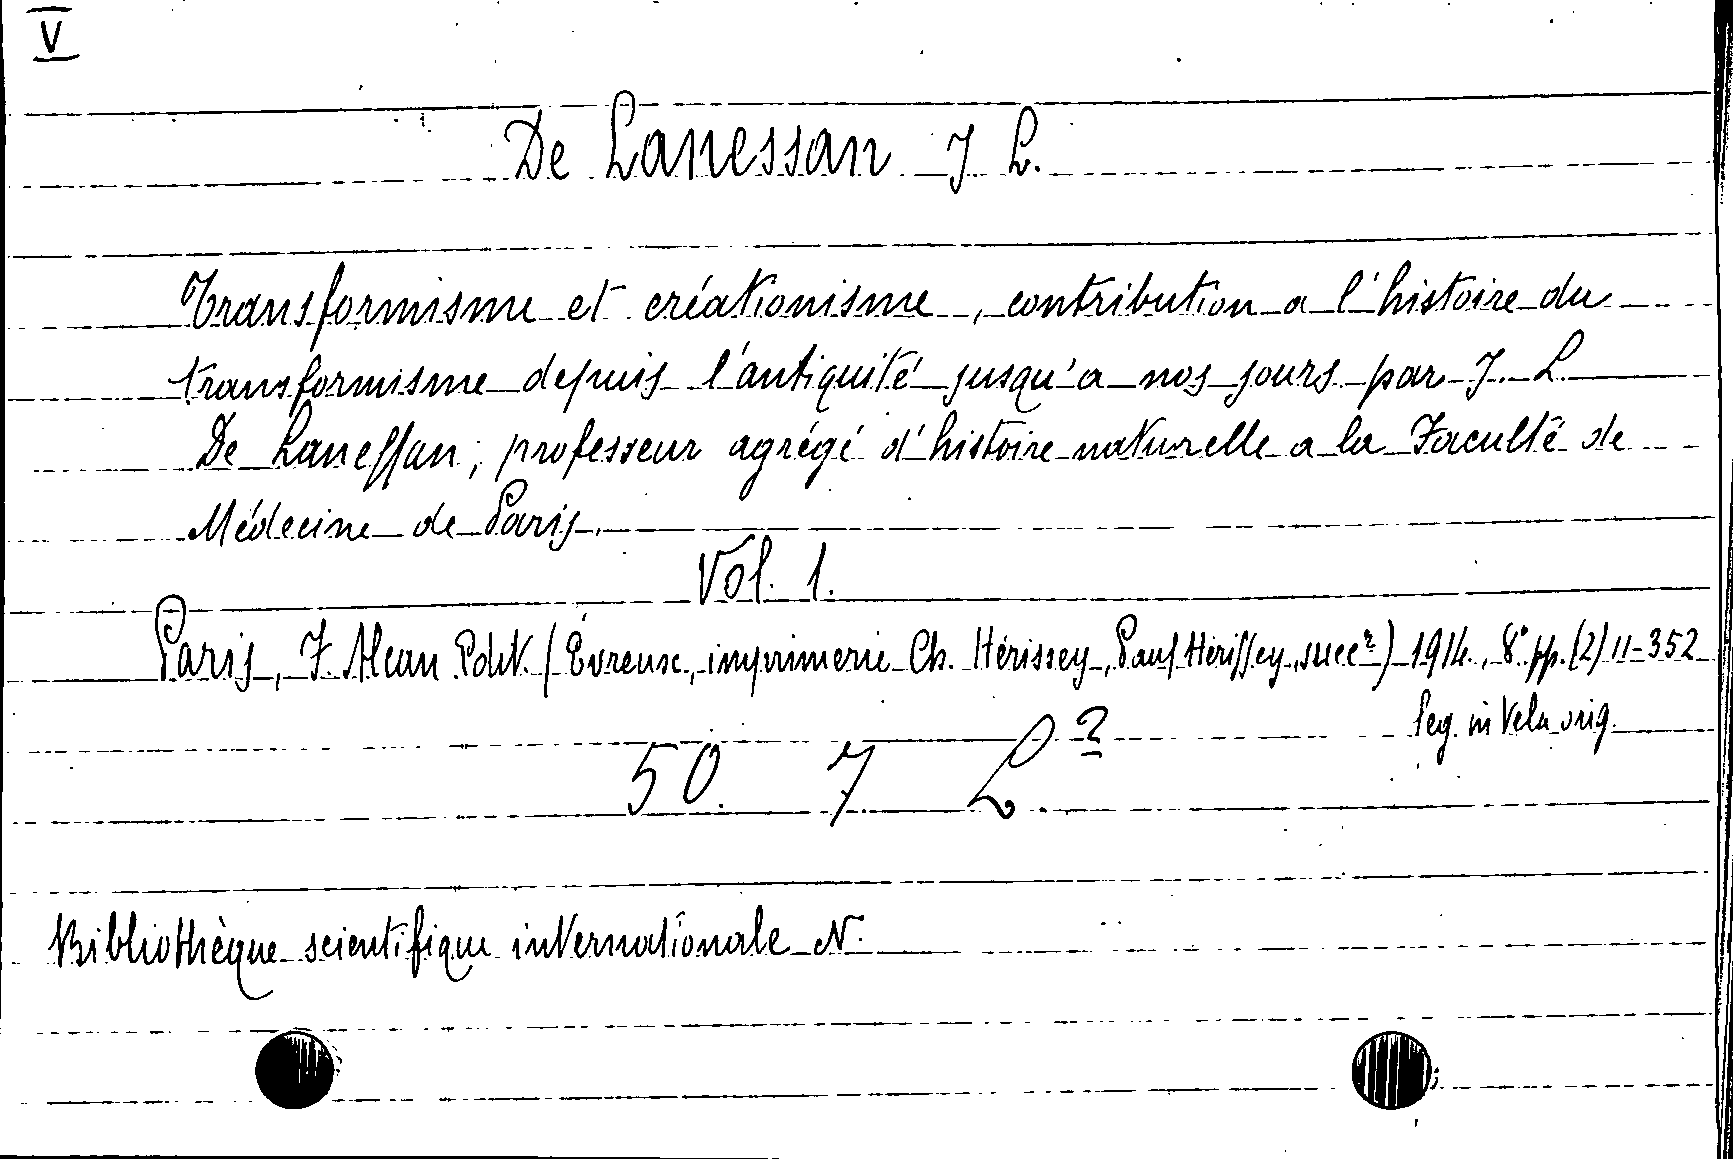 V
De Lanessan J L.
Transformisme et créationisme, contribution a l'histoire du
transformisme depuis l'antiquité jusqu'a nos jours par J. L.
De Lanessan, professeur agrégé d'histoire naturelle a la Faculté de
Médecine de Paris.
Vol. 1.
Paris, F. Alcan Edit. (Évreux, imprimerie Ch. Hérissey, Paul Hérissey, succr) 1914., 8° pp. (2) 11-352
leg. in tela orig.
50. 7 L.2
Bibliothèque scientifique internationale N.